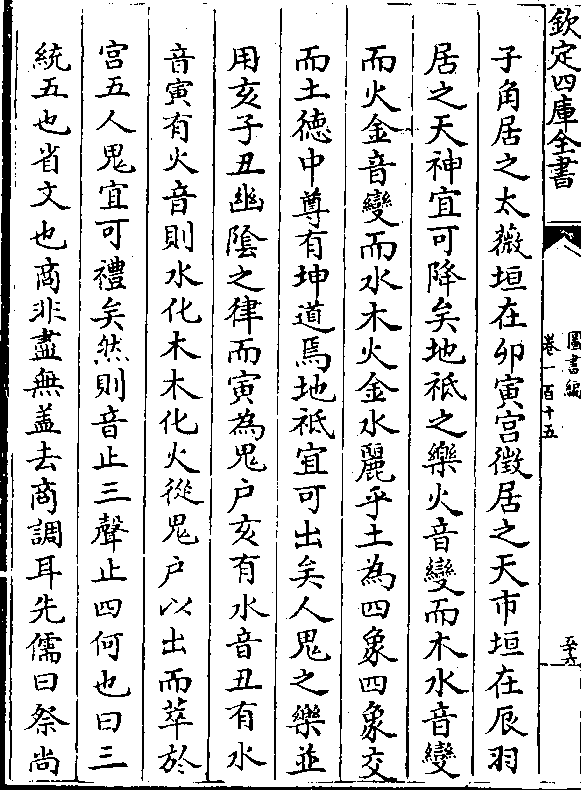 欽定四庫全書
圖書編
卷一百十五
子角居之太薇垣在卯寅宫徵居之天市垣在辰羽
居之天神宜可降矣地祇之樂火音變而木水音變
而火金音變而水木火金水麗乎土為四象四象交
而土徳中尊有坤道焉地祇宜可出矣人鬼之樂並
用亥子丑幽隂之律而寅為鬼户亥有水音丑有水
音寅有火音則水化木木化火從鬼户以出而萃於
宫五人鬼宜可禮矣然則音止三聲止四何也曰三
統五也省文也商非盡無盖去商調耳先儒曰祭尚